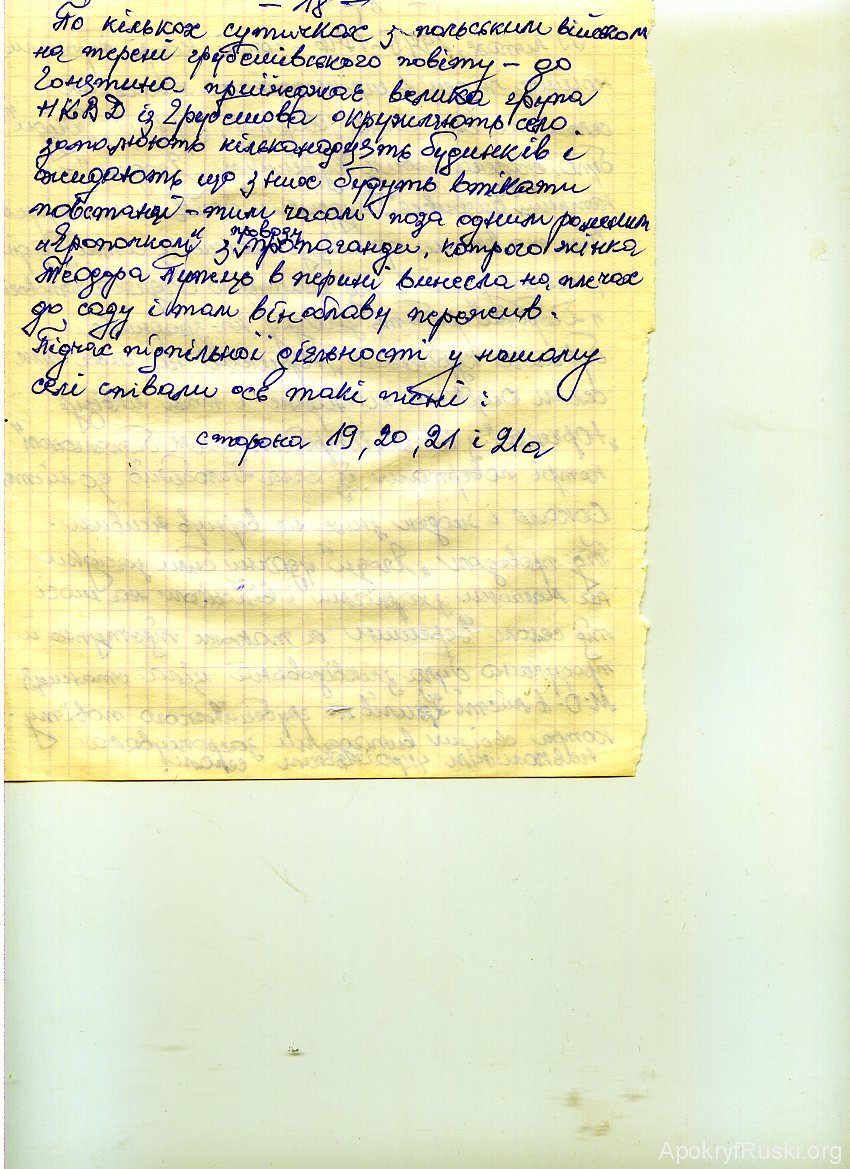 – 18 –
По кількох сутичках з польським військом
на терені грубешівського повіту – до
Гонятина приїжджає велика група
НКВД із Грубешова окружають село.
запалюють кільканадцять будинків і
ожидають що з них будуть втікати
повстанці – тим часом поза одним раненим
проводу
„Ярополком" з пропаганди, котрого жінка
Теодора Пужець в перині винесла на плечах
до саду і там він облаву пережив.
Підчас підпільної діяльності у нашому
селі співали ось такі пісні :
сторона 19, 20, 21 і 21а
ApokryfRuski.org